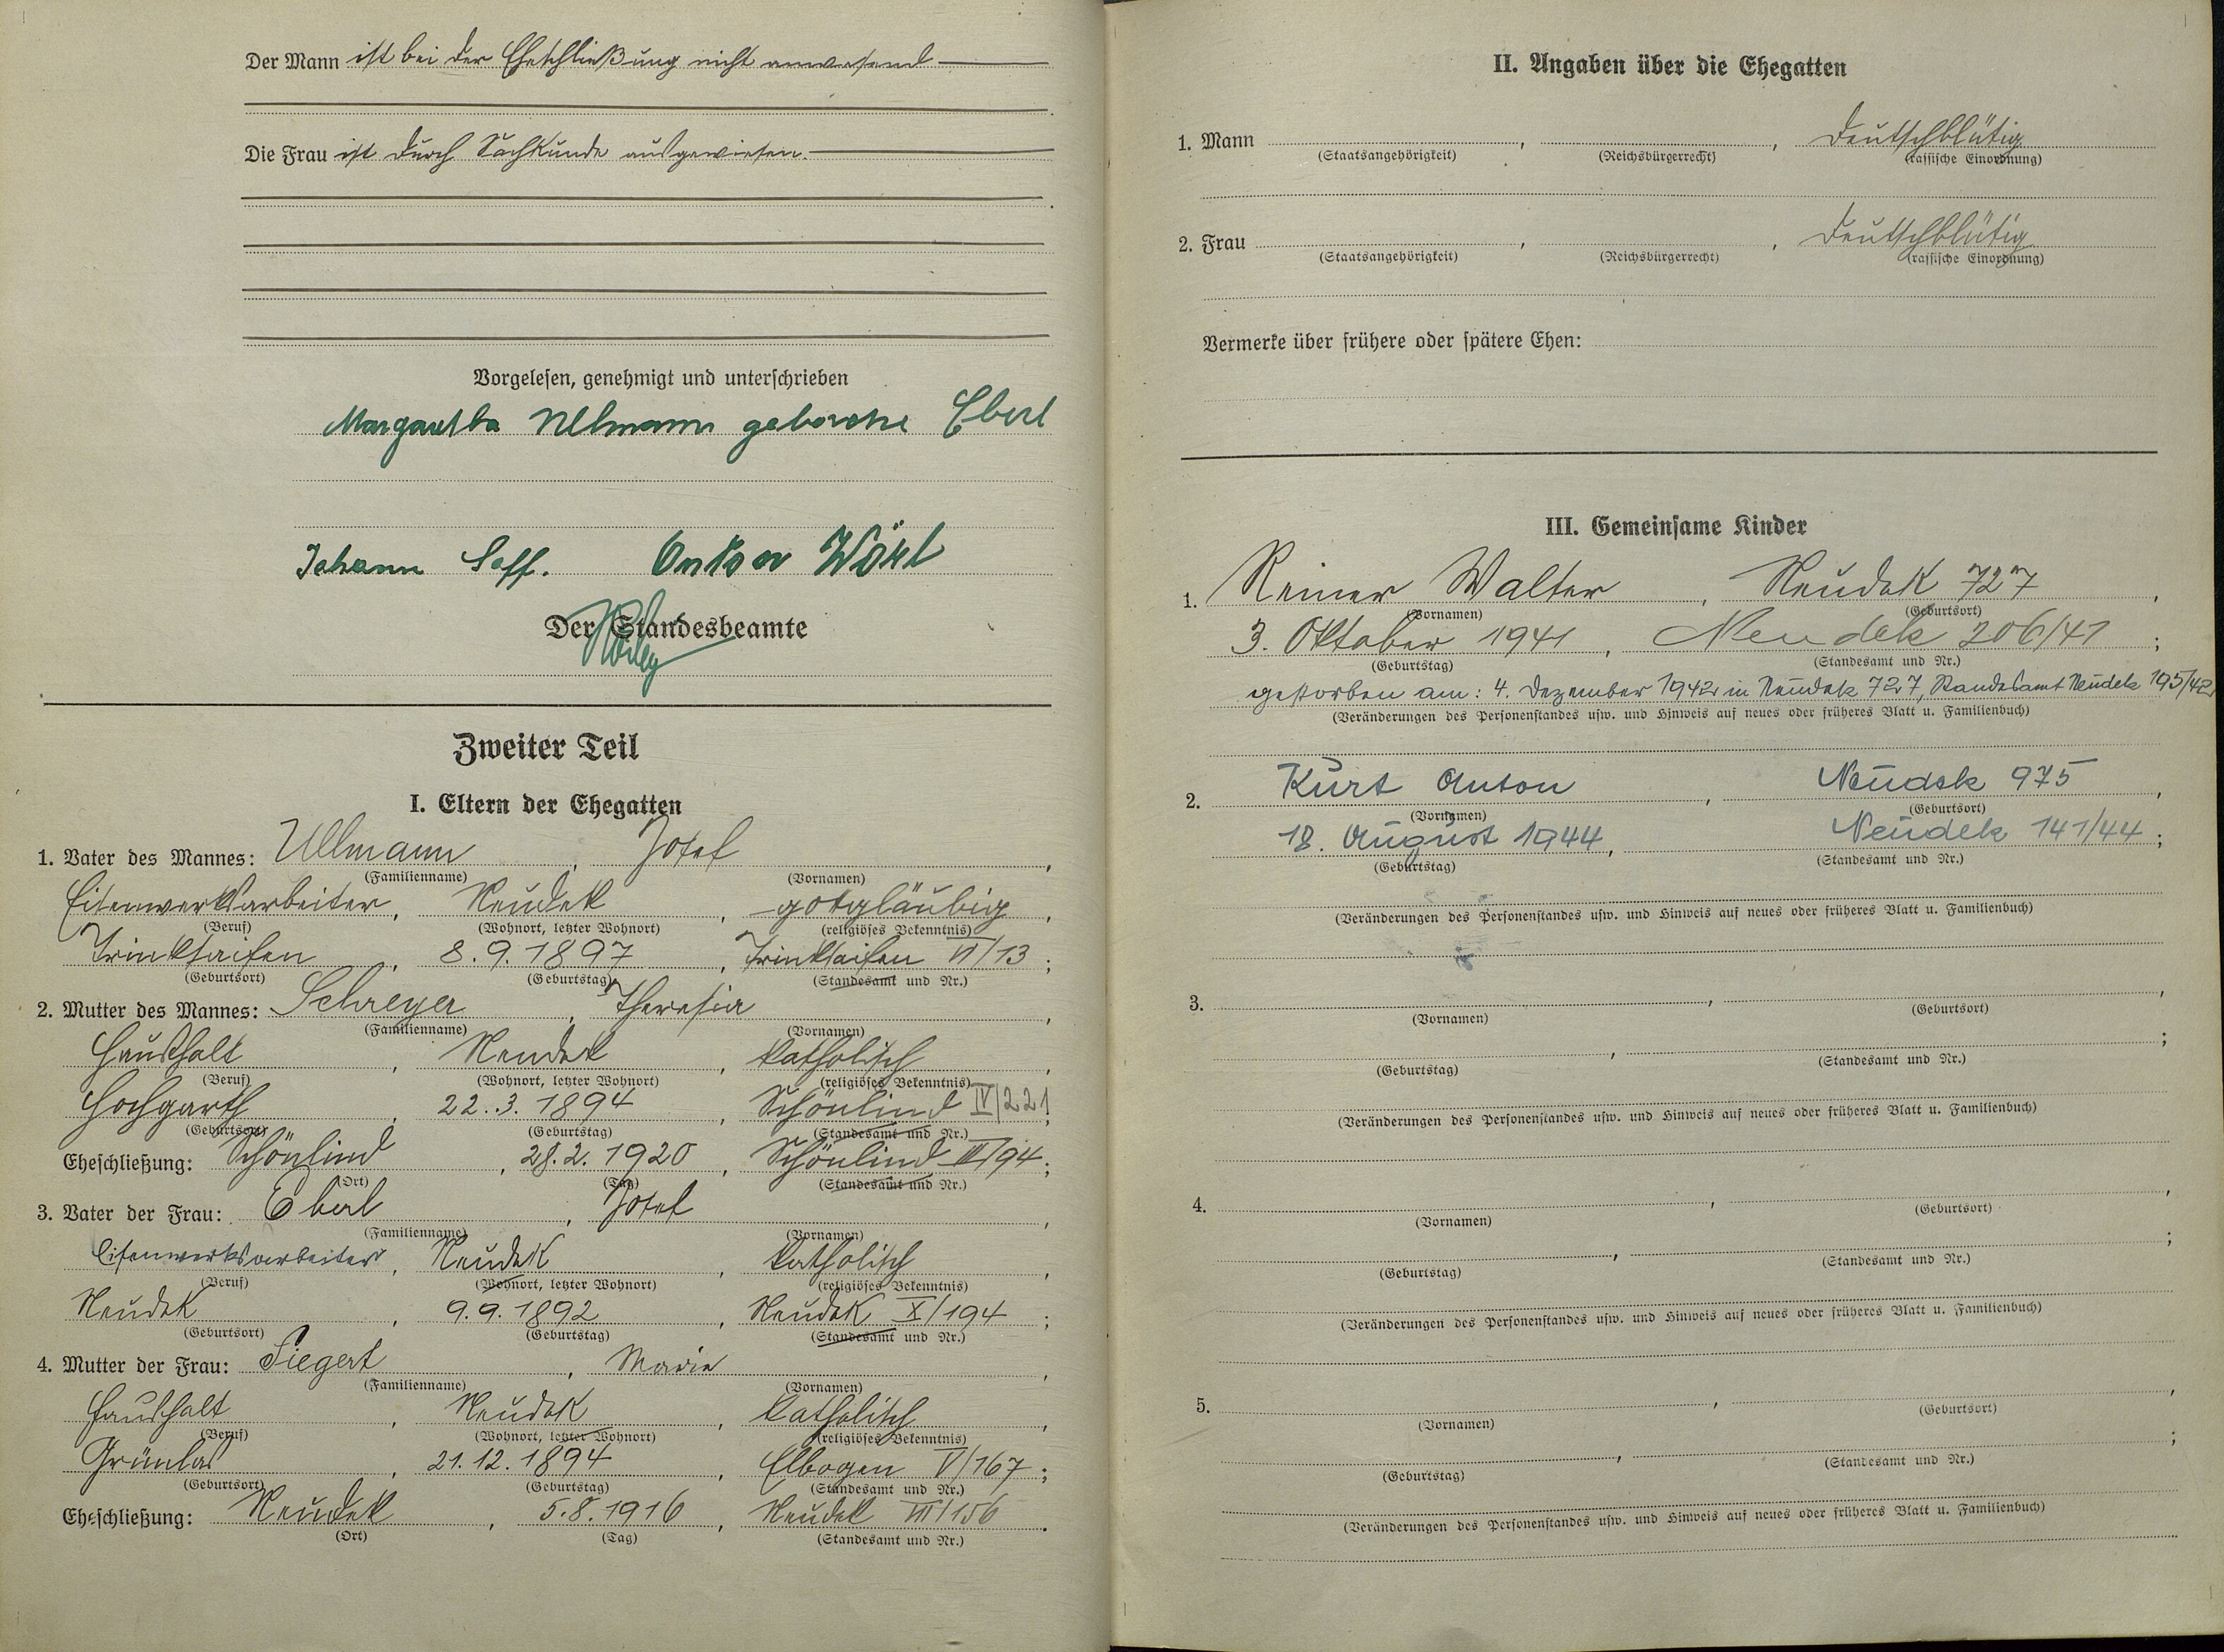 Der Mann ist bei der Eheschließung nicht anwesend
Die Frau ist durch Sachkunde ausgewiesen.
Vorgelesen, genehmigt und unterschrieben
Margaretha Ullmann geborene Eberl
Johann Anton
Der Standesbeamte
Zweiter Teil
I. Eltern der Ehegatten
1. Vater des Mannes: Ullmann, Josef,
(Familienname) (Vornamen)
Eisenwerksarbeiter, Neudek, gottgläubig,
(Beruf) (Wohnort, letzter Wohnort) (religiöses Bekenntnis)
Trinksaifen, 8.9.1897, Trinksaifen VI/13;
(Geburtsort) (Geburtstag) (Standesamt und Nr.)
2. Mutter des Mannes: Schreyer, Theresia,
(Familienname) (Vornamen)
Haushalt, Neudek, katholisch,
(Beruf) (Wohnort, letzter Wohnort) (religiöses Bekenntnis)
Hochgarth, 22.3.1894, Schönlind IV/221;
(Geburtsort) (Geburtstag) (Standesamt und Nr.)
Eheschließung: Schönlind, 28.2.1920, Schönlind III/94;
(Ort) (Tag) (Standesamt und Nr.)
3. Vater der Frau: Eberl, Josef,
(Familienname) (Vornamen)
Eisenwerksarbeiter, Neudek, katholisch,
(Beruf) (Wohnort, letzter Wohnort) (religiöses Bekenntnis)
Neudek, 9.9.1892, Neudek X/194;
(Geburtsort) (Geburtstag) (Standesamt und Nr.)
4. Mutter der Frau: Siegert, Marie,
(Familienname) (Vornamen)
Haushalt, Neudek, katholisch,
(Beruf) (Wohnort, letzter Wohnort) (religiöses Bekenntnis)
Grünlas, 21.12.1894, Elbogen V/167;
(Geburtsort) (Geburtstag) (Standesamt und Nr.)
Eheschließung: Neudek, 5.8.1916, Neudek VIII/156.
(Ort) (Tag) (Standesamt und Nr.)
II. Angaben über die Ehegatten
1. Mann , , Deutschblütig
(Staatsangehörigkeit) (Reichsbürgerrecht) (rassische Einordnung)
2. Frau , , Deutschblütig
(Staatsangehörigkeit) (Reichsbürgerrecht) (rassische Einordnung)
Vermerke über frühere oder spätere Ehen:
III. Gemeinsame Kinder
1. Reiner Walter, Neudek 727,
(Vornamen) (Geburtsort)
3. Oktober 1941, Neudek 206/41;
(Geburtstag) (Standesamt und Nr.)
gestorben am: 4. Dezember 1942 in Neudek 727, Standesamt Neudek 195/42
(Veränderungen des Personenstandes usw. und Hinweis auf neues oder früheres Blatt u. Familienbuch)
2. Kurt Anton, Neudek 975,
(Vornamen) (Geburtsort)
18. August 1944, Neudek 141/44;
(Geburtstag) (Standesamt und Nr.)
(Veränderungen des Personenstandes usw. und Hinweis auf neues oder früheres Blatt u. Familienbuch)
3. , ,
(Vornamen) (Geburtsort)
, ;
(Geburtstag) (Standesamt und Nr.)
(Veränderungen des Personenstandes usw. und Hinweis auf neues oder früheres Blatt u. Familienbuch)
4. , ,
(Vornamen) (Geburtsort)
, ;
(Geburtstag) (Standesamt und Nr.)
(Veränderungen des Personenstandes usw. und Hinweis auf neues oder früheres Blatt u. Familienbuch)
5. , ,
(Vornamen) (Geburtsort)
, ;
(Geburtstag) (Standesamt und Nr.)
(Veränderungen des Personenstandes usw. und Hinweis auf neues oder früheres Blatt u. Familienbuch)